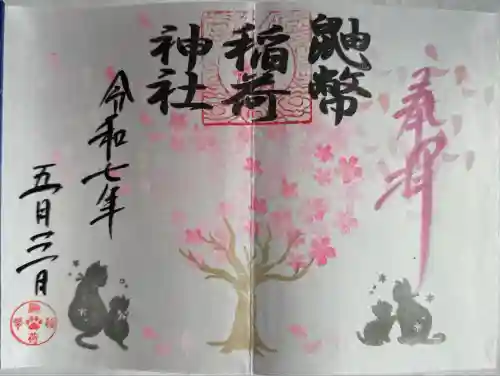 奉拝
鼬幣
稲荷
神社
令和七年
五月三日